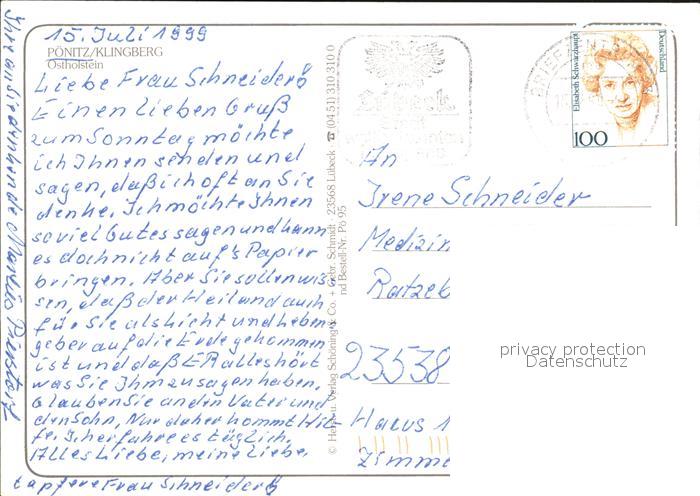 15. Juli 1999
PÖNITZ/KLINGBERG
Ostholstein
Liebe Frau Schneider
Einen lieben Gruß
zum Sonntag möchte
ich Ihnen senden und
sagen, daß ich oft an Sie
denke. Ich möchte Ihnen
soviel Gutes sagen und kann
es doch nicht auf's Papier
bringen. Aber Sie sollen wis
sen, daß der Heiland auch
für Sie als Licht und Leben
geber auf die Erde gekommen
ist und daß ER alles hört
was Sie Ihm zu sagen haben.
Glauben Sie an den Vater und
den Sohn, Nur daher kommt Hil-
fe. Ich erfahre es täglich.
Alles Liebe, meine Liebe,
tapfere Frau Schneider
Ihre an Sie denkende
© Verlag Schöning & Co. + Gebr. Schmidt · 23568 Lübeck · ☎ (04 51) 310 310 0
nd Bestell-Nr. Pö 95
Deutschland
Elisabeth Schwarzhaupt
100
An
Irene Schneider
Medizin
Ratzeb
23538
Haus 1
Zimme
privacy protection
Datenschutz